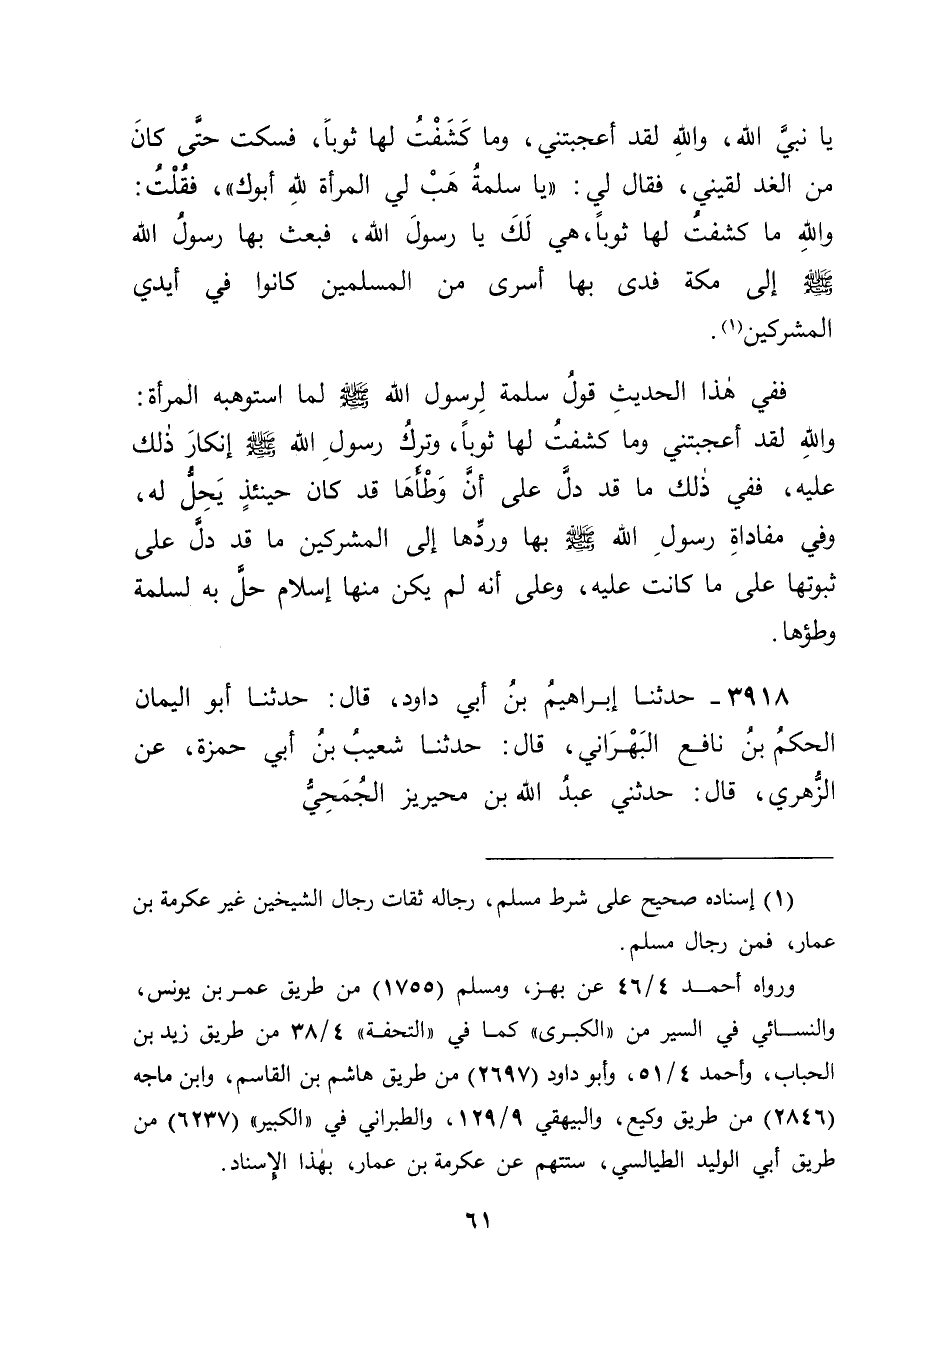 يا نبيَّ الله، واللهِ لقد أعجبتني، وما كَشَفْتُ لها ثوباً، فسكت حتَّى كانَ
من الغد لقيني، فقال لي: «يا سلمةُ هَبْ لي المرأة للهِ أبوك»، فقُلْتُ:
واللهِ ما كشفتُ لها ثوباً، هي لَكَ يا رسولَ الله، فبعث بها رسولُ الله
ﷺ إلى مكة فدى بها أسرى من المسلمين كانوا في أيدي
المشركين(١).
ففي هٰذا الحديثِ قولُ سلمة لِرسول الله ﷺ لما استوهبه المرأة:
واللهِ لقد أعجبتني وما كشفتُ لها ثوباً، وتركُ رسولِ الله ﷺ إنكارَ ذٰلك
عليه، ففي ذٰلك ما قد دلَّ على أنَّ وَطْأَهَا قد كان حينئذٍ يَحِلُّ له،
وفي مفاداةِ رسولِ الله ﷺ بها وردِّها إلى المشركين ما قد دلَّ على
ثبوتها على ما كانت عليه، وعلى أنه لم يكن منها إسلام حلَّ به لسلمة
وطؤها.
٣٩١٨ - حدثنا إبراهيمُ بنُ أبي داود، قال: حدثنا أبو اليمان
الحكمُ بنُ نافع البَهْرَاني، قال: حدثنا شعيبُ بنُ أبي حمزة، عن
الزُّهري، قال: حدثني عبدُ الله بن محيريز الجُمَحِيُّ
(١) إسناده صحيح على شرط مسلم، رجاله ثقات رجال الشيخين غير عكرمة بن
عمار، فمن رجال مسلم.
ورواه أحمد ٤٦/٤ عن بهز، ومسلم (١٧٥٥) من طريق عمر بن يونس،
والنسائي في السير من «الكبرى» كما في «التحفة» ٣٨/٤ من طريق زيد بن
الحباب، وأحمد ٥١/٤، وأبو داود (٢٦٩٧) من طريق هاشم بن القاسم، وابن ماجه
(٢٨٤٦) من طريق وكيع، والبيهقي ١٢٩/٩، والطبراني في «الكبير» (٦٢٣٧) من
طريق أبي الوليد الطيالسي، ستتهم عن عكرمة بن عمار، بهٰذا الإِسناد.
٦١